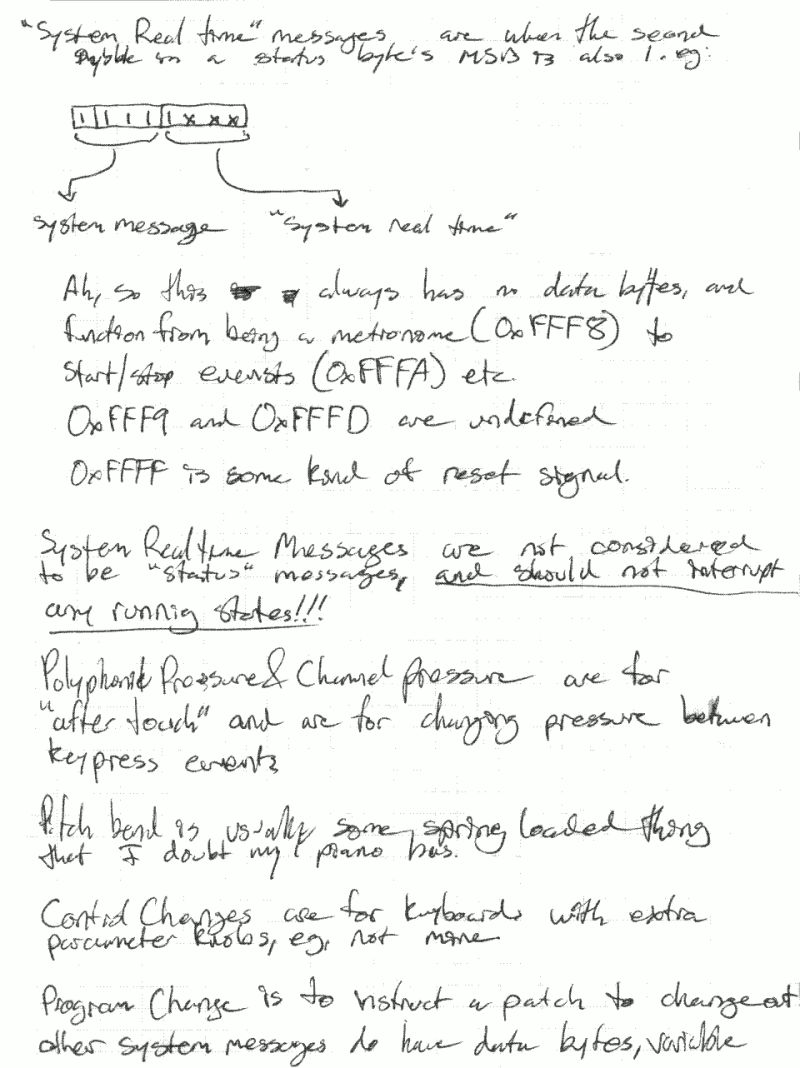 "System Real time" messages are when the second
nybble in a status byte's MSB is also 1. eg:
1 1 1 1 1 x x x
system message "System real time"
Ah, so this always has no data bytes, and
function from being a metronome (0xFFF8) to
start/stop events (0xFFFA) etc.
0xFFF9 and 0xFFFD are undefined
0xFFFF is some kind of reset signal.
System Realtime Messages are not considered
to be "status" messages, and should not interrupt
any running states!!!
Polyphonic Pressure & Channel pressure are for
"after touch" and are for changing pressure between
keypress events
Pitch bend is usually some spring loaded thing
that I doubt my piano has.
Control Changes are for keyboards with extra
parameter knobs, eg, not mine
Program Change is to instruct a patch to change at
other system messages do have data bytes, variable